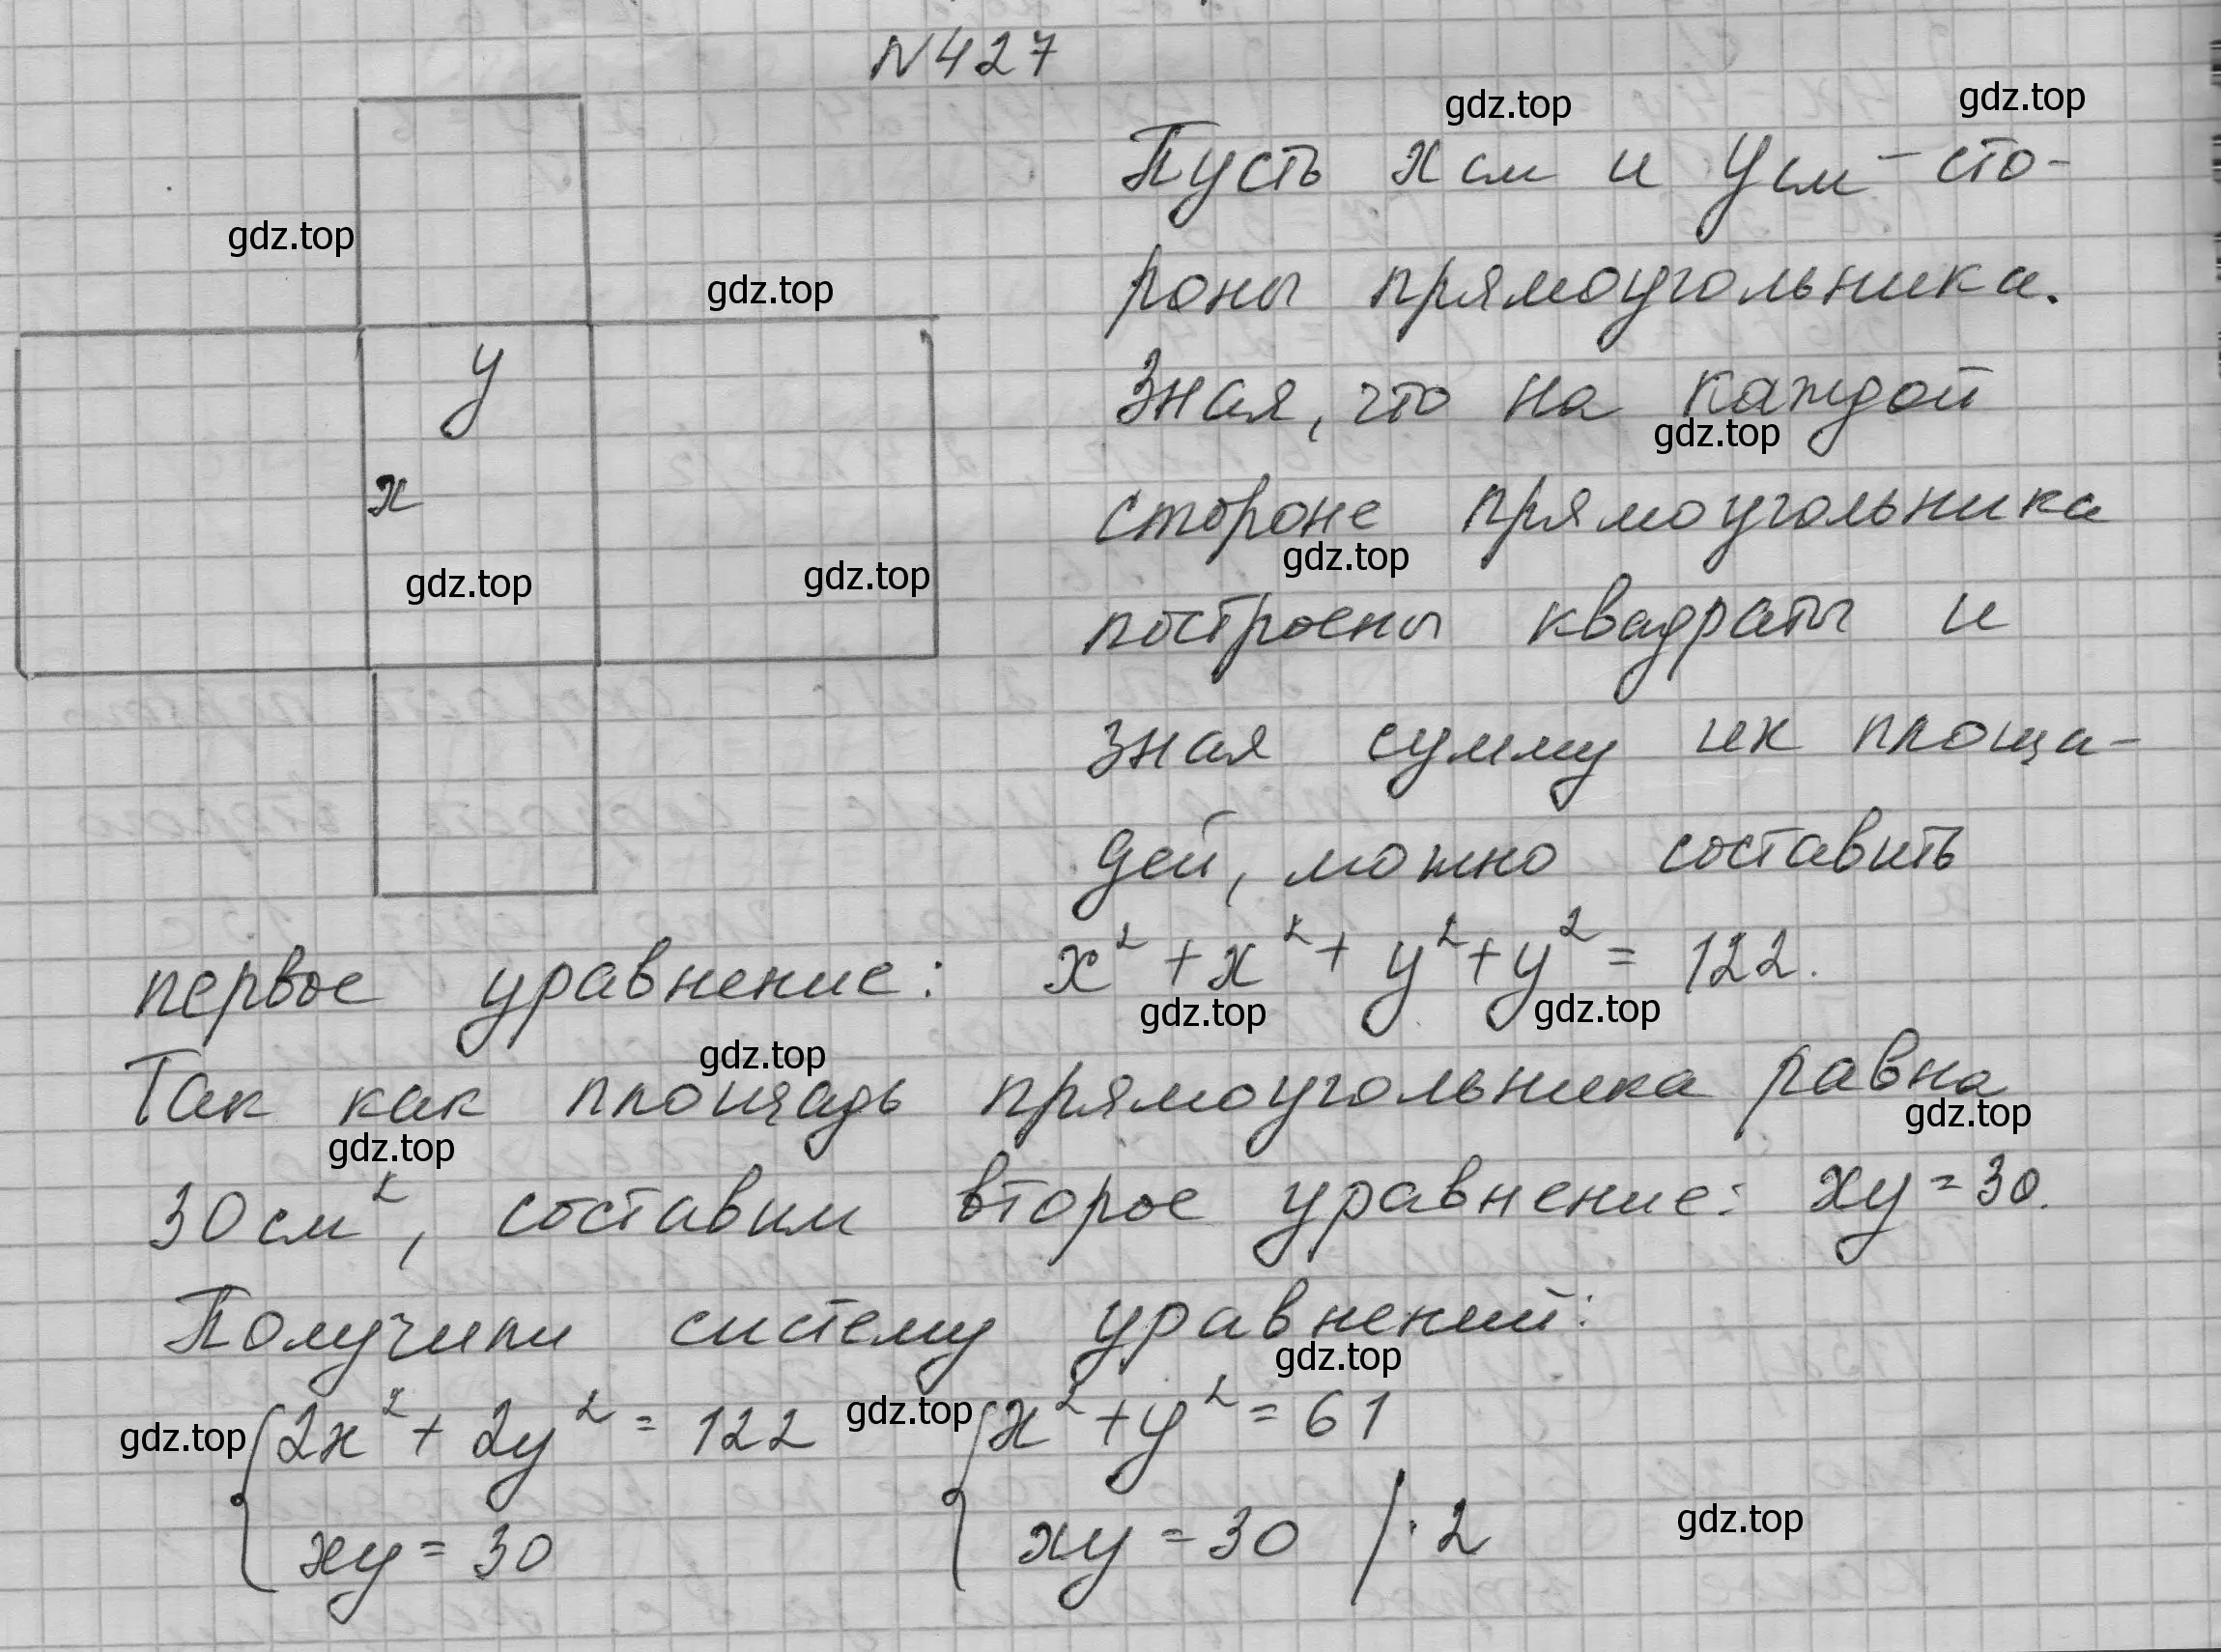 N427
gdz.top
gdz.top
Пусть x см и y см – сто-
gdz.top
роны прямоугольника.
gdz.top
y
Зная, что на каждой
gdz.top
x
стороне прямоугольника
gdz.top
gdz.top
gdz.top
построены квадраты и
зная сумму их площа-
дей, можно составить
первое уравнение: x² + x² + y² + y² = 122.
gdz.top
gdz.top
gdz.top
Так как площадь прямоугольника равна
gdz.top
gdz.top
30 см², составим второе уравнение: xy = 30.
Получили систему уравнений:
gdz.top
gdz.top
gdz.top
{2x² + 2y² = 122 {x² + y² = 61
xy = 30 xy = 30 / · 2
gdz.top